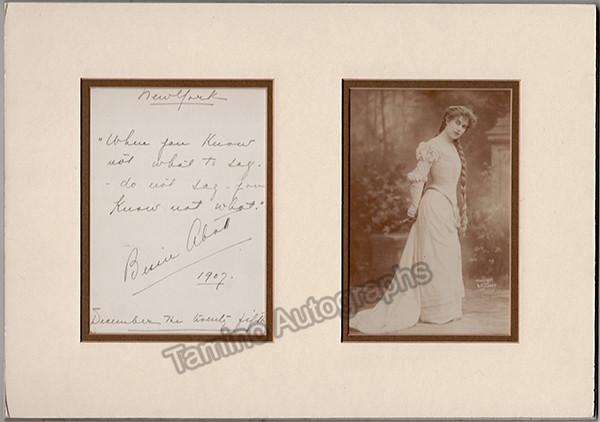 New York
"When you Know
not what to say -
- do not say - you
Know not what."
Bessie Abott
1907.
December the twenty fifth
Tamino Autographs